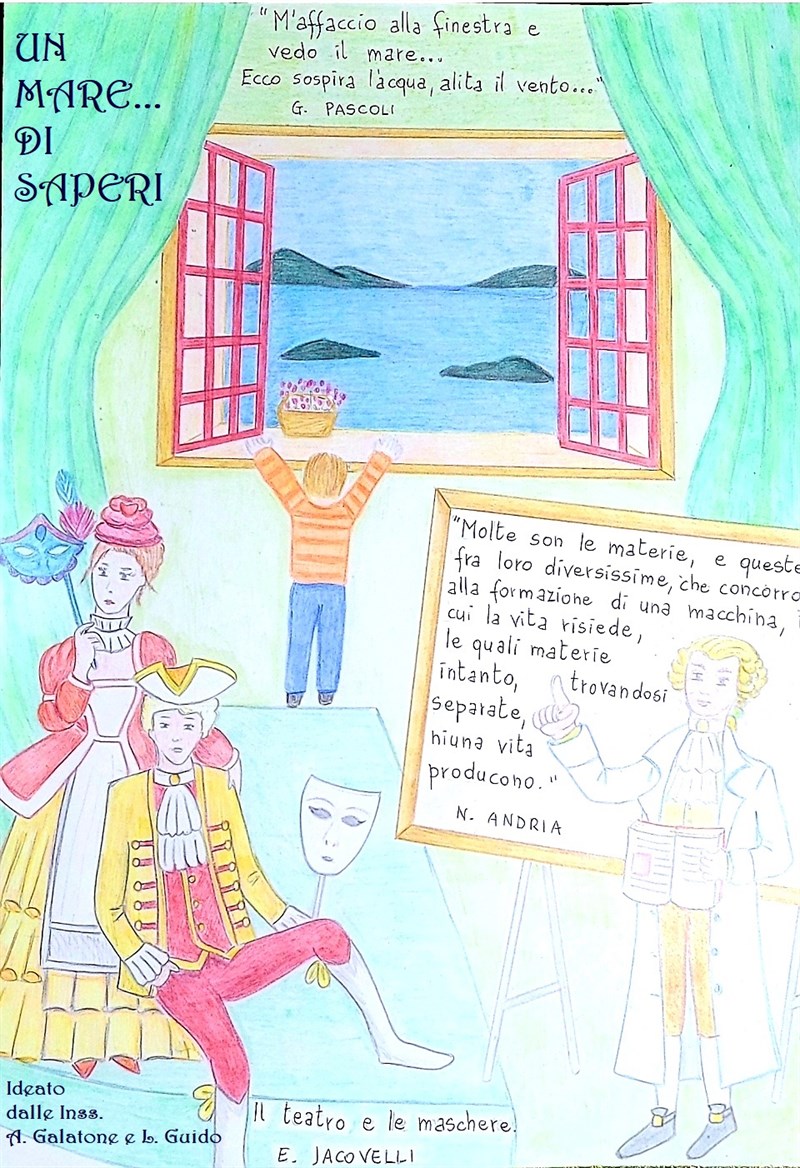 UN
MARE...
DI
SAPERI
"M'affaccio alla finestra e
vedo il mare...
Ecco sospira l'acqua, alita il vento..."
G. PASCOLI
"Molte son le materie, e queste
fra loro diversissime, che concorro
alla formazione di una macchina, i
cui la vita risiede,
le quali materie
intanto, trovandosi
separate,
niuna vita
producono."
N. ANDRIA
Ideato
dalle Inss.
A. Galatone e L. Guido
Il teatro e le maschere.
E. JACOVELLI